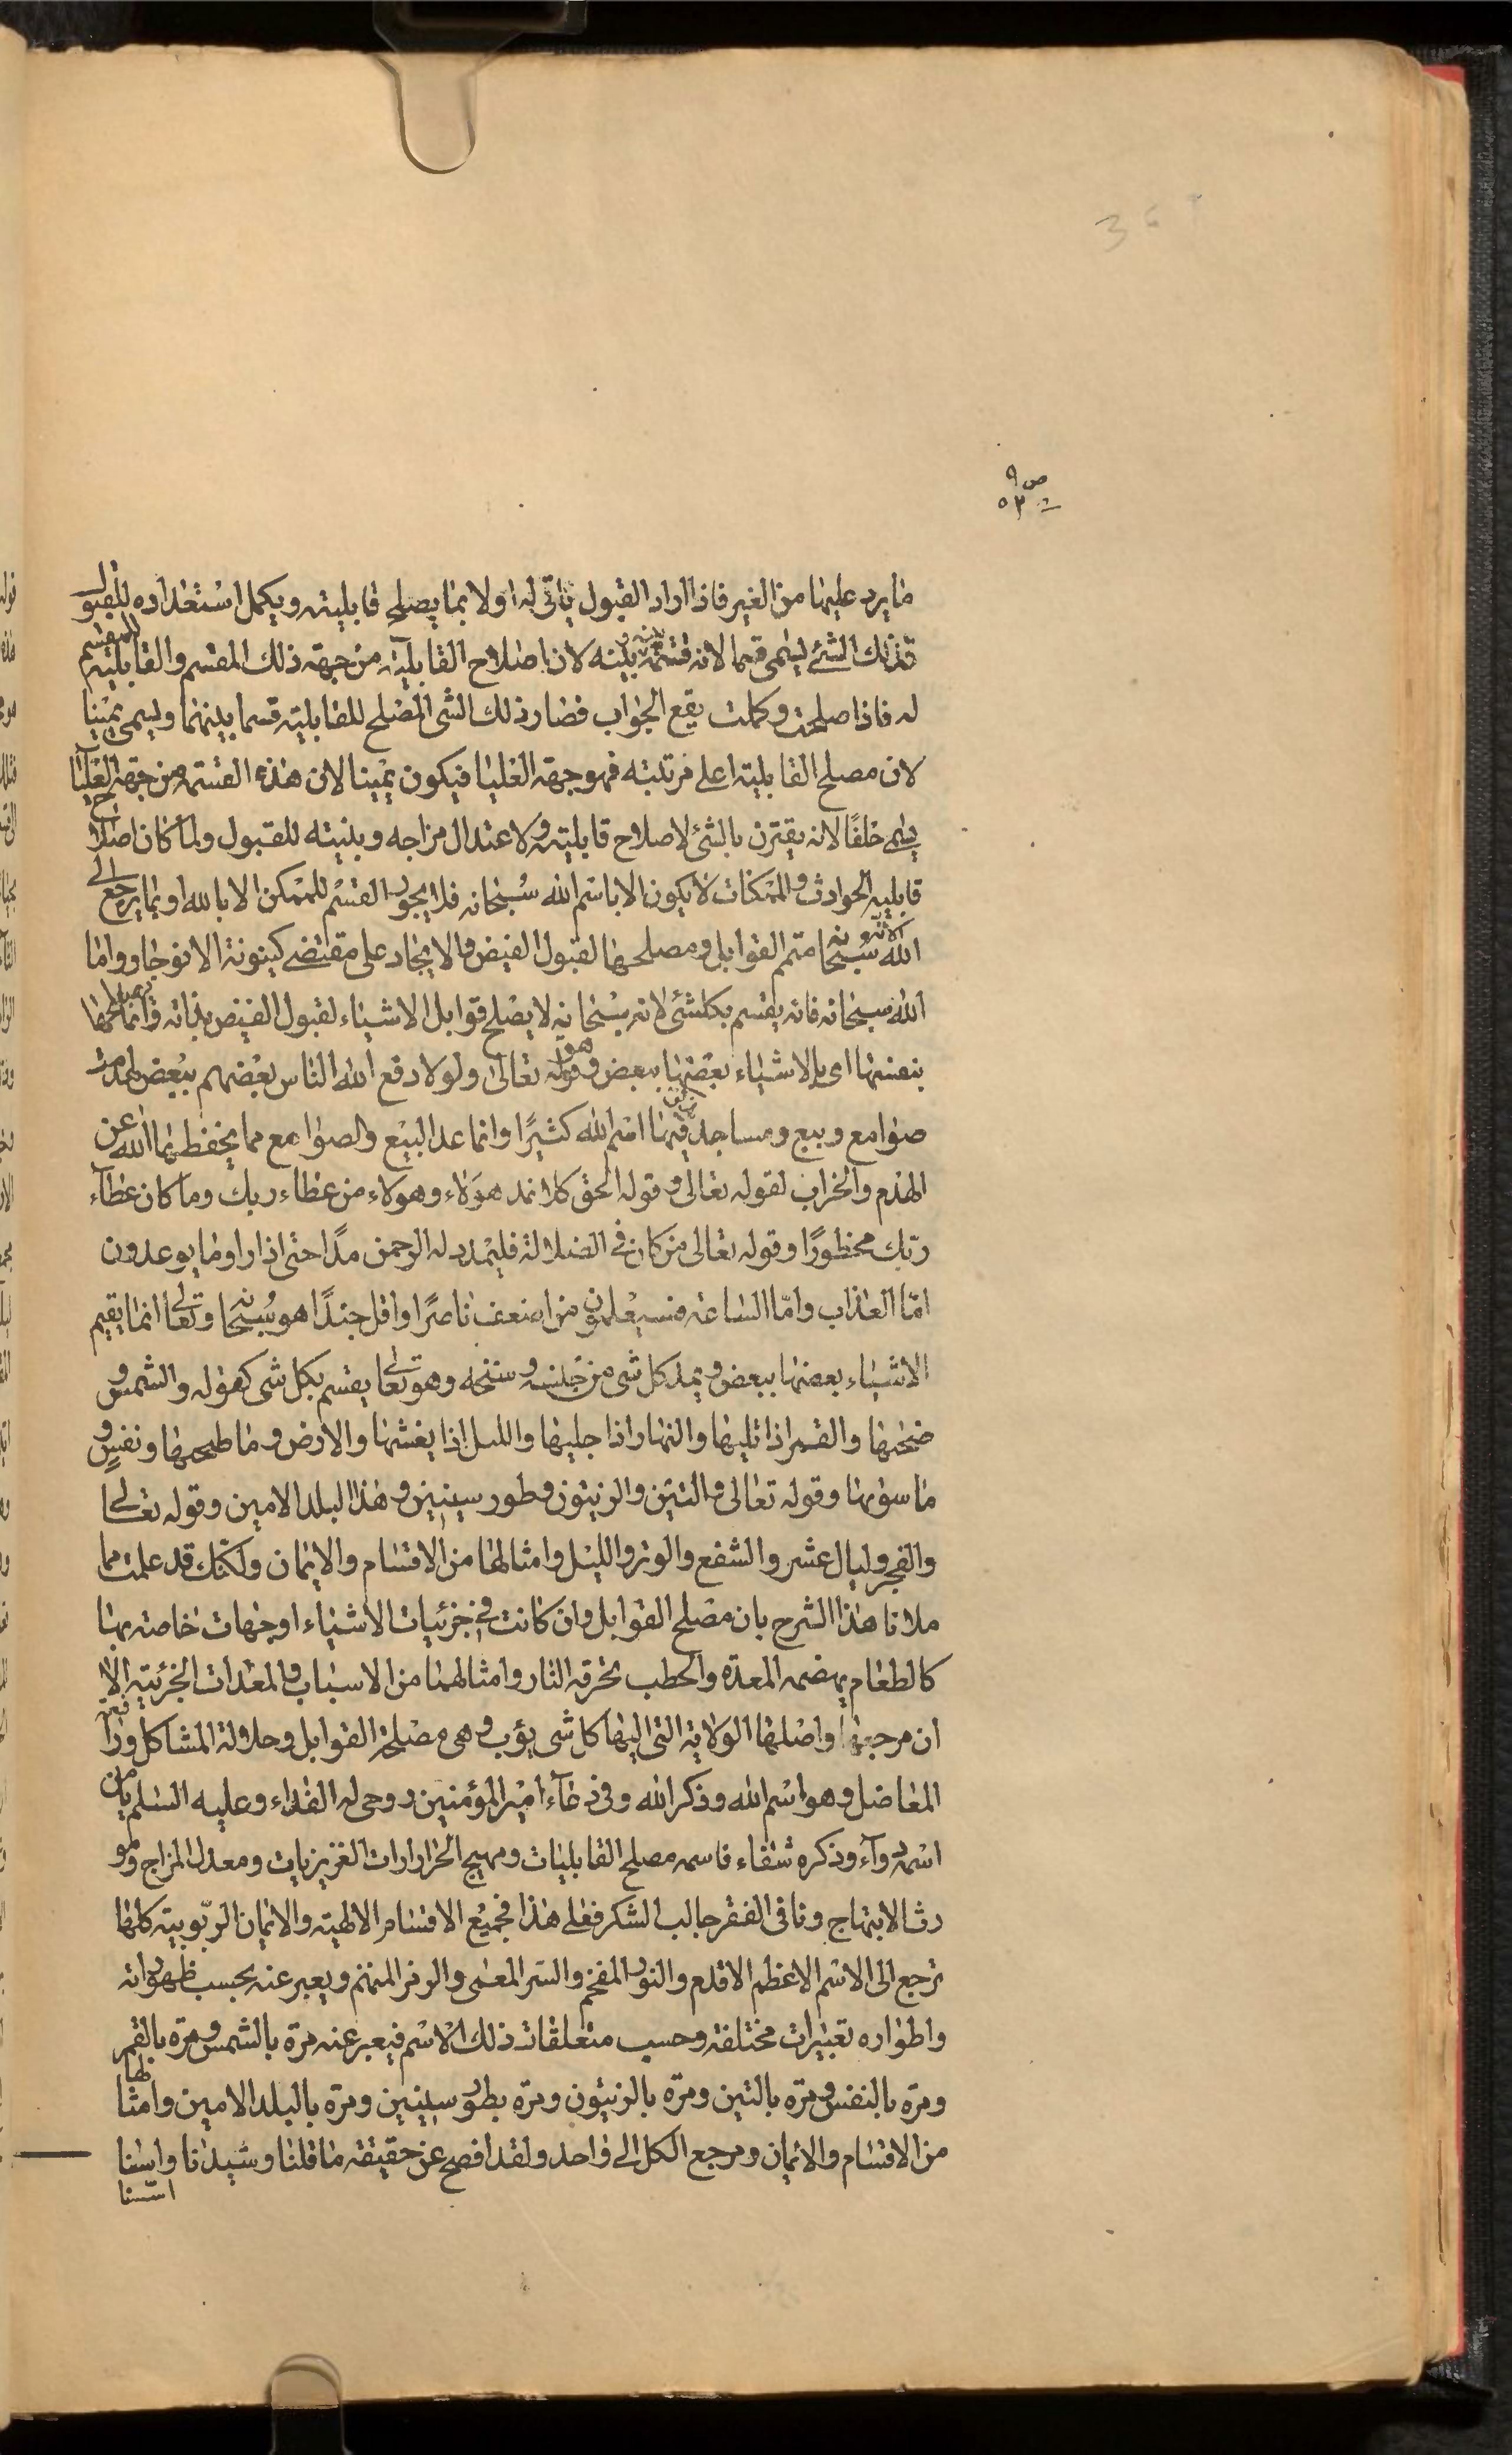 ص ٩
٥٣
ما يرد عليها من الغير فاذا اراد القبول ياتى له اولا بما يصلح قابليته ويكمل استعداده للقبول
فذلك الشئ يسمى قسما لانه قسمة بينه وبينه لان اصلاح القابلية من جهة ذلك المقسم والقابلية للمقسم
له فاذا صلحت وكملت يقع الجواب فصار ذلك الشى المصلح للقابلية قسما بينهما ويسمى يمينا
لان مصلح القابلية اعلى مرتبته فهو جهة العليا فيكون يمينا لان هذه القسمة من جهة العليا
يسمى حلفًا لانه يقترن بالشئ لاصلاح قابليته ولاعتدال مزاجه وبنيته للقبول ولما كان اصلاح
قابلية الحوادث والممكنات لايكون الا باسم الله سبحانه فلا يجوز القسم للممكن الا بالله او بما يرجع الى
الله سبحانه لانه متمم القوابل ومصلحها لقبول الفيض والايجاد على مقتضى كينونة الانوجاد واما
الله سبحانه فانه يقسم بكلشئ لانه سبحانه لا يصلح قوابل الاشياء لقبول الفيض بذاته وانما يصلحها
بنفسها اى بالاشياء بعضها ببعض وهو قوله تعالى ولولا دفع الله الناس بعضهم ببعض لهدمت
صوامع وبيع ومساجد يذكر فيها اسم الله كثيرًا وانما عد البيع والصوامع مما يحفظ بهما الله عن
الهدم والخراب لقوله تعالى وقوله الحق كلا نمد هؤلاء وهولاء من عطاء ربك وما كان عطآء
ربّك محظورًا وقوله تعالى من كان فى الضلالة فليمدد له الرحمن مدًا حتى اذا راوا ما يوعدون
امّا العذاب وامّا الساعة فسيعلمون من اضعف ناصرًا واقل جندًا هو سبحانه وتعالى انما يقيم
الاشياء بعضها ببعض ويمد كل شى من جنسه وسنخه وهو تعالى يقسم بكل شى كقوله والشمس و
ضحيها والقمر اذا تليها والنهار اذا جليها والليل اذا يغشها والارض وما طحيها ونفسٍ و
ما سويها وقوله تعالى والتين والزيتون وطور سينين وهذا البلد الامين وقوله تعالى
والفجر وليال عشر والشفع والوتر والليل وامثالها من الاقسام والايمان ولكنك قد علمت مما
ملانا هذا الشرح بان مصلح القوابل وان كانت فى جزئيات الاشياء اوجهات خاصة بها
كالطعام يهضمه المعدة والحطب يحرقه النار وامثالهما من الاسباب والمعدات الجزئية الا
ان مرجعها واصلها الولاية التى اليها كل شى يؤب وهى مصلحة القوابل وحلالة المشاكل ورافعة
المعاضل وهو اسم الله وذكر الله وفى دعآء امير المؤمنين روحى له الفداء وعليه السلم يا من
اسمه دوآء وذكره شفاء فاسمه مصلح القابليات ومهيج الحرارات الغريزيات ومعدل المزاج ومو
رث الابتهاج ونافى الفقر جالب الشكر فعلى هذا فجميع الاقسام الالهية والايمان الربوبية كلها
ترجع الى الاسم الاعظم الاقدم والنور المفخم والسر المعمى والرمز المنمنم ويعبر عنه بحسب ظهوراته
واطواره تعبيرات مختلفة وحسب متعلقات ذلك الاسم فيعبر عنه مرة بالشمس ومرة بالقمر
ومرة بالنفس ومرة بالتين ومرة بالزيتون ومرة بطور سينين ومرة بالبلد الامين وامثالها
من الاقسام والايمان ومرجع الكل الى واحد ولقد افصح عن حقيقة ما قلنا وشيدنا واسسنا
اسّسنا